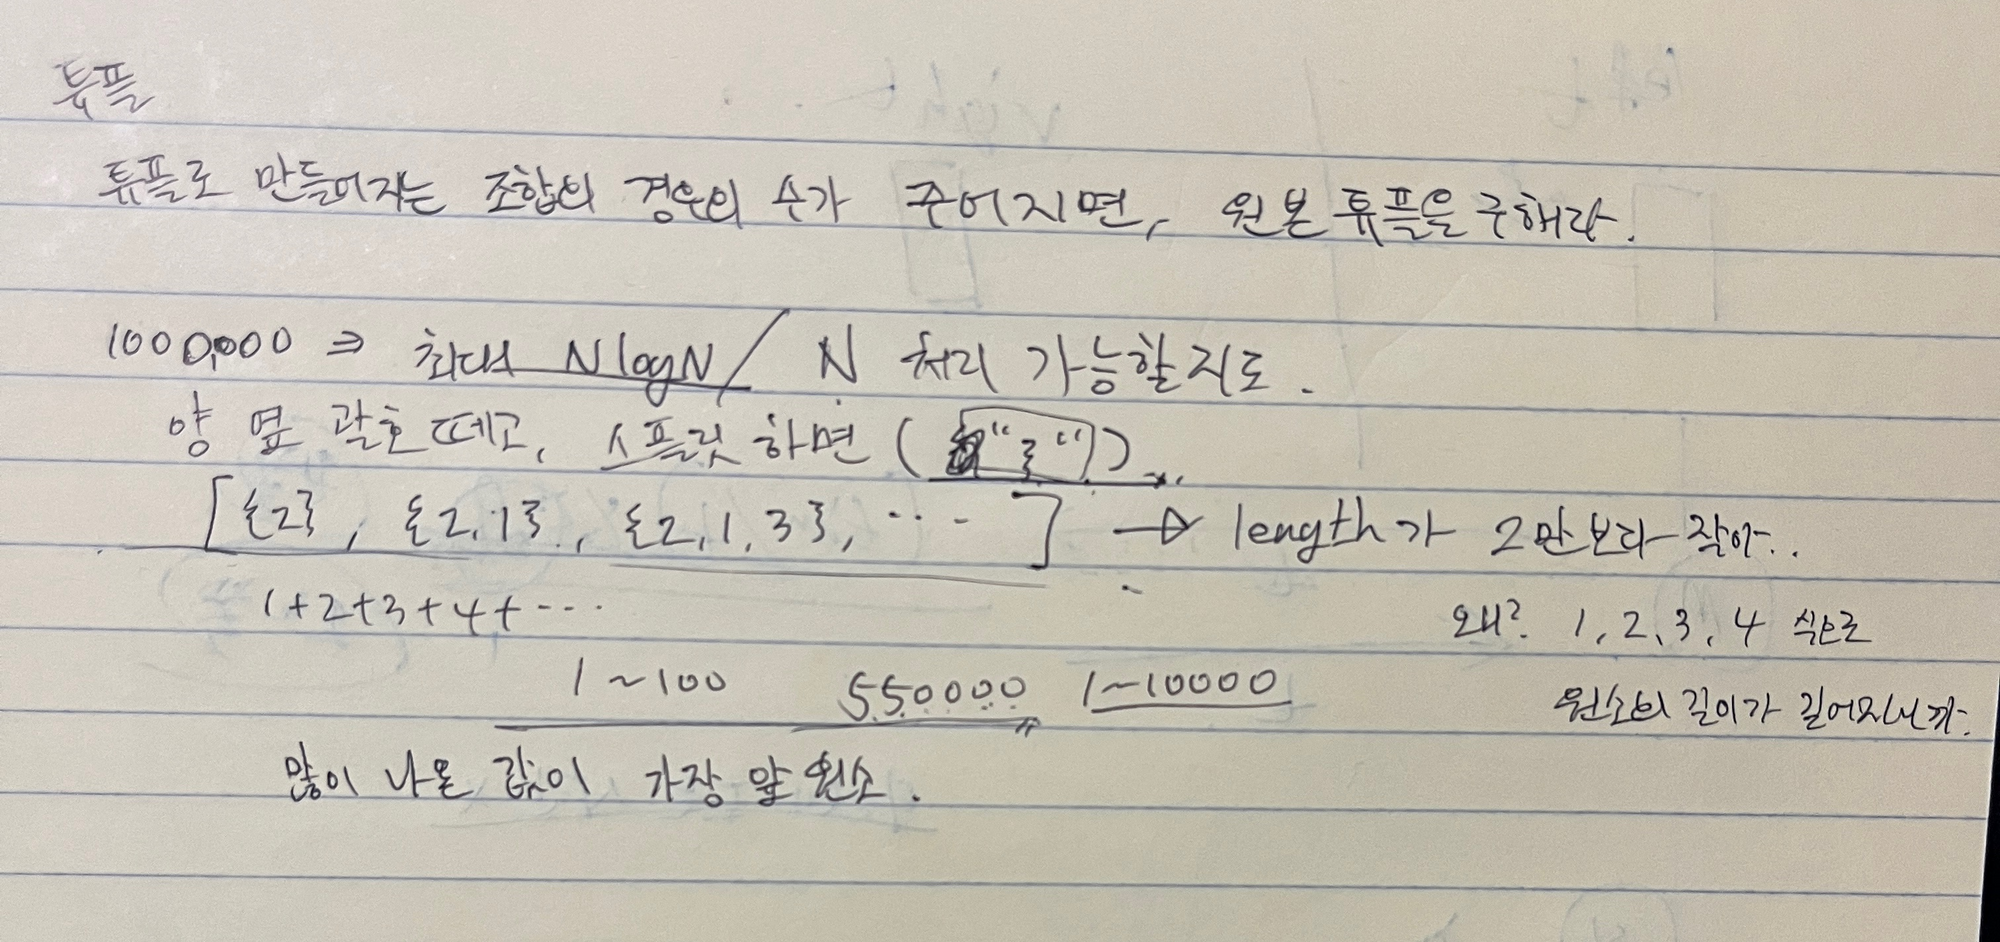 튜플
튜플로 만들어지는 조합의 경우의 수가 주어지면, 원본 튜플을 구해라.
1000,000 ⇒ 최대 NlogN / N 처리 가능할지도.
양 옆 괄호 떼고, 스플릿 하면 ( "}" )
[ {2}, {2,1}, {2,1,3}, ··· ] → length가 2만보다 작아..
1+2+3+4+···
왜? 1,2,3,4 식으로
1~100 550000 1~10000
원소의 길이가 길어지니까.
많이 나온 값이 가장 앞 원소.